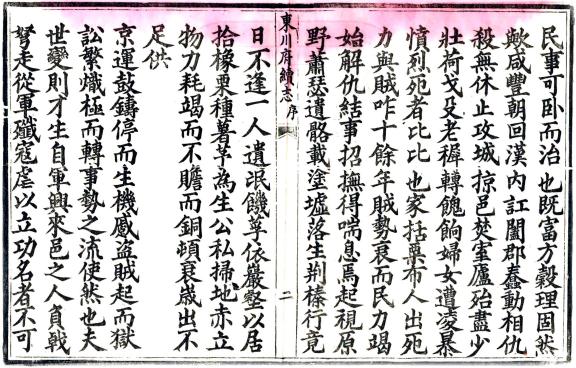 民事可卧而治也既富方穀理固然
歟咸豐朝回漢內訌闔郡蠢動相仇
殺無休止攻城掠邑焚室廬殆盡少
壯荷戈殳老穉轉餽餉婦女遭凌暴
憤烈死者比比也家括粟布人出死
力與賊咋十餘年賊勢衰而民力竭
始解仇結事招撫得喘息焉起視原
野蕭瑟遺骼載塗墟落生荆榛行竟
東川府續志
序
二
日不逢一人遺氓饑莩依巖壑以居
拾橡栗種薯芋為生公私掃地赤立
物力耗竭而不贍而銅頓衰歲出不
足供
京運鼓鑄停而生機慼盜賊起而獄
訟繁熾極而轉事勢之流使然也夫
世變則才生自軍興來邑之人負戟
弩走從軍殲寇虐以立功名者不可